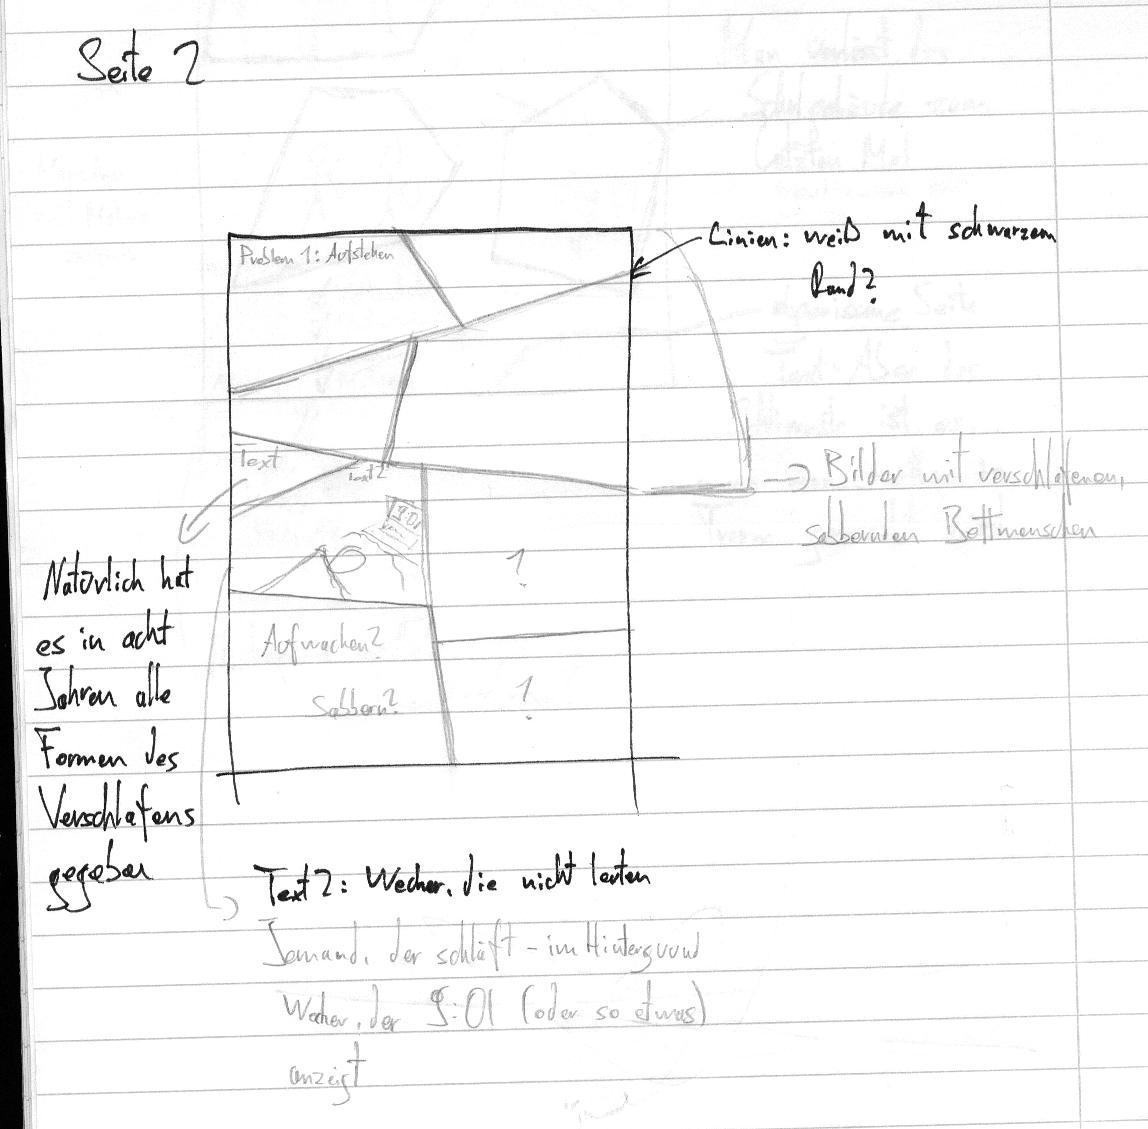 Seite 2
Problem 1: Aufstehen
Linien: weiß mit schwarzem
Rand?
Text
Text 2
→ Bilder mit verschlafenen,
sabbernden Bettmenschen
9:01
?
Aufwachen?
Sabbern?
?
Natürlich hat
es in acht
Jahren alle
Formen des
Verschlafens
gegeben
Text 2: Wecker, die nicht läuten
Jemand, der schläft - im Hintergrund
Wecker, der 9:01 (oder so etwas)
anzeigt